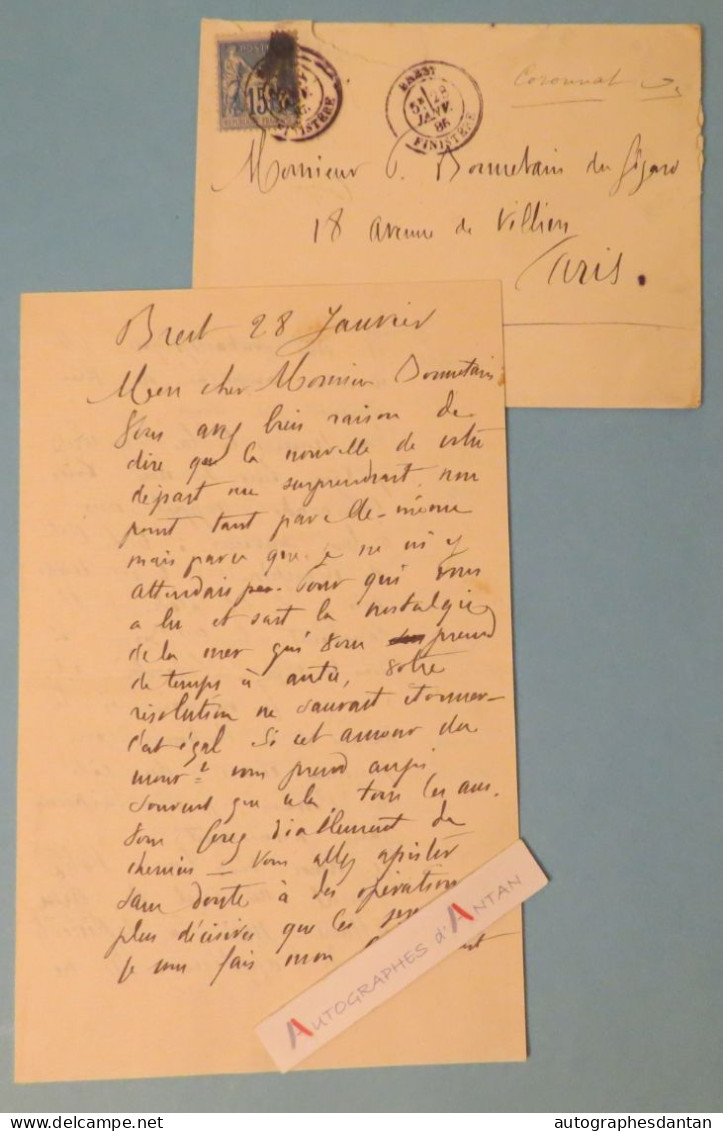 BREST
5E 28
JANV.
86
FINISTERE
15
FINISTÈRE
Coronnat
Monsieur P. Bonnetain du figaro
18 Avenue de Villiers
Paris.
Brest 28 Janvier
Mon cher Monsieur Bonnetain
Vous avez bien raison de
dire que la nouvelle de votre
départ me surprendrait, non
point tant par elle-même
mais parce que je ne m'y
attendais pas. Pour qui vous
a lu et sait la nostalgie
de la mer qui vous prend
de temps à autre, votre
résolution ne saurait étonner -
c'est égal si cet amour du
mouvt vous prend aussi
souvent que cela, tous les ans,
vous ferez diablement du
chemin - Vous allez assister
sans doute à des opérations
plus décisives que les
Je me fais mon
AUTOGRAPHES d'ANTAN
autographesdantan